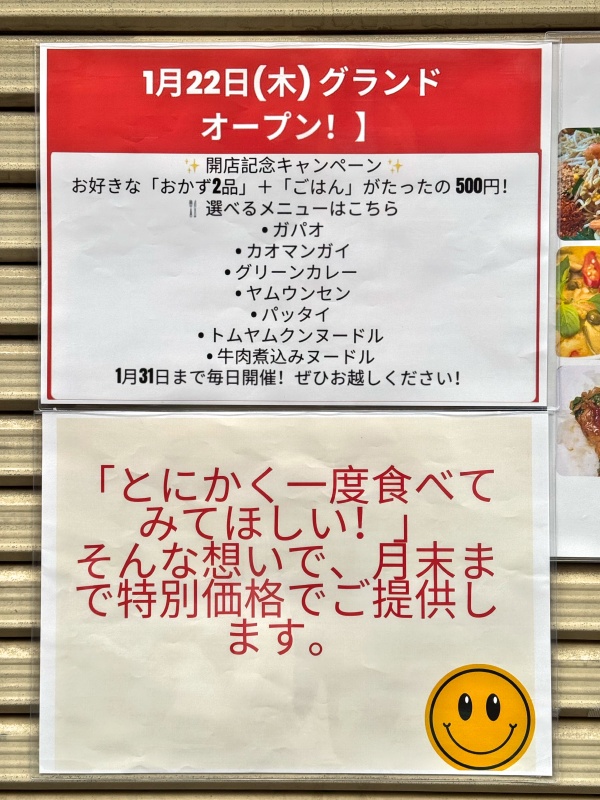 1月22日(木) グランド
オープン！】
✨ 開店記念キャンペーン ✨
お好きな「おかず2品」＋「ごはん」がたったの 500円！
🍴 選べるメニューはこちら
• ガパオ
• カオマンガイ
• グリーンカレー
• ヤムウンセン
• パッタイ
• トムヤムクンヌードル
• 牛肉煮込みヌードル
1月31日まで毎日開催！ぜひお越しください！
「とにかく一度食べて
みてほしい！」
そんな想いで、月末ま
で特別価格でご提供し
ます。